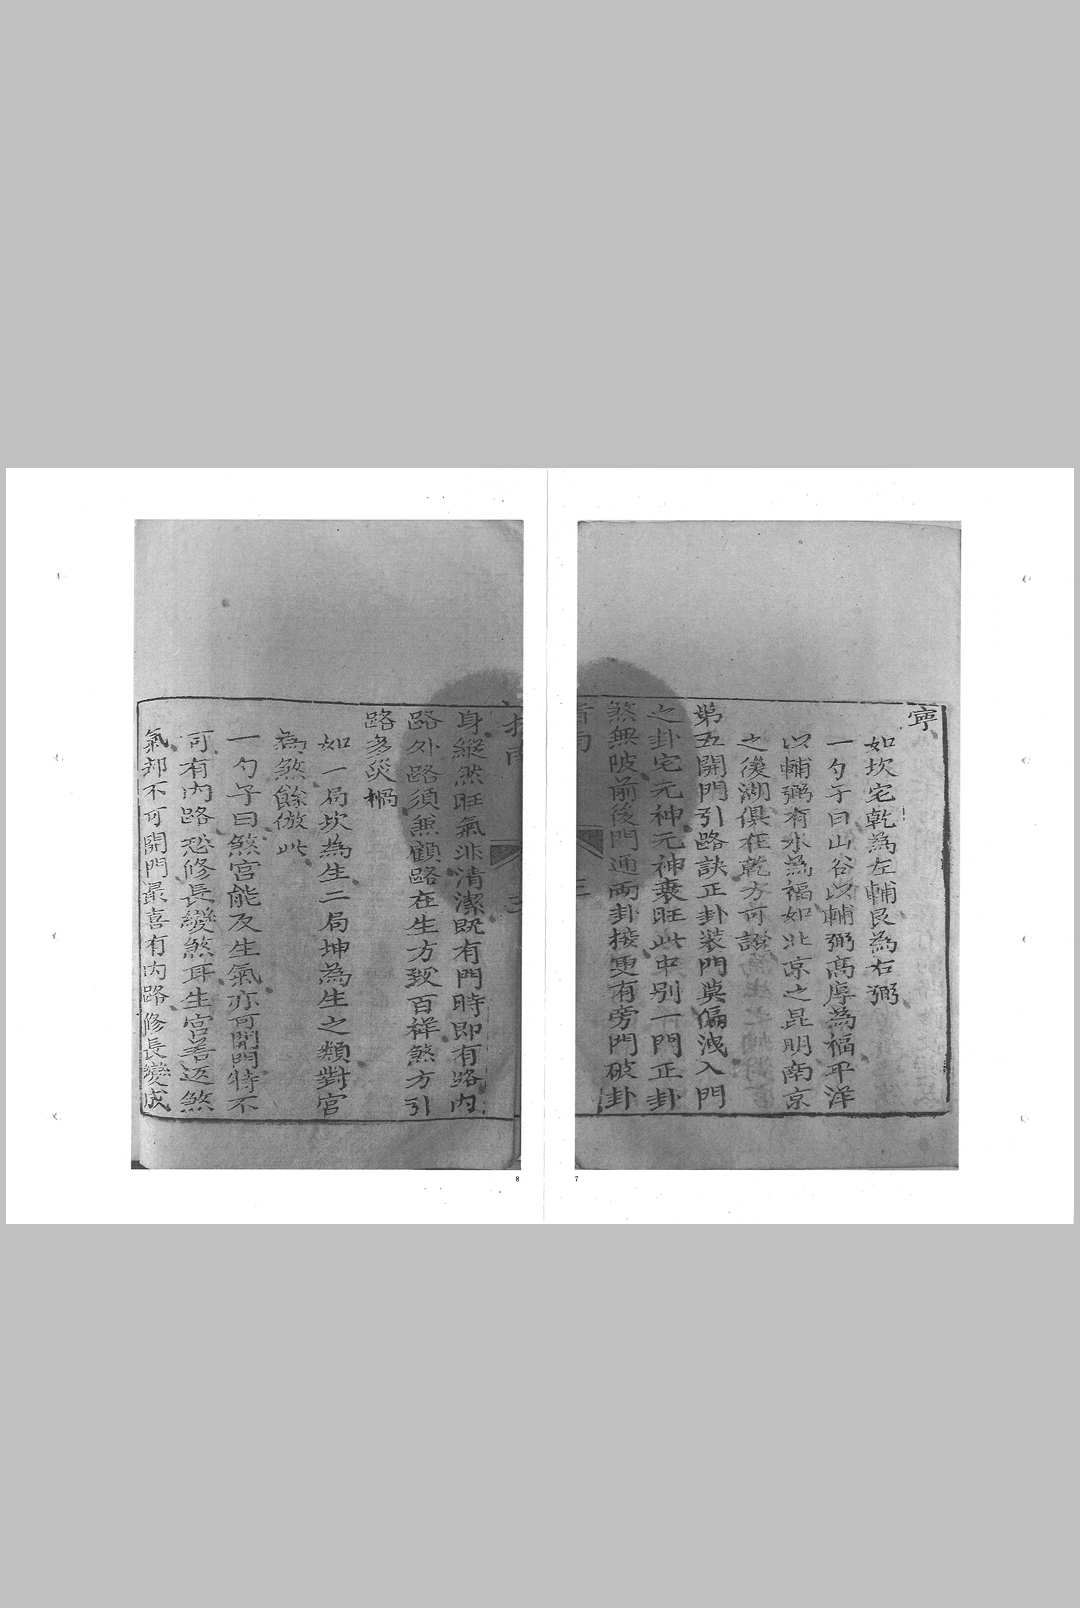 寧
如坎宅乾為左輔艮為右弼
一勺子曰山谷以輔弼高厚為福平洋
以輔弼有水為福如北京之昆明南京
之後湖俱在乾方可證
第五開門引路訣正卦裝門莫偏洩入門
之卦宅元神元神衰旺此中别一門正卦
煞無陂前後門通兩卦接更有旁門破卦
指南
三
7
指南
三
身縱然旺氣非清潔既有門時即有路内
路外路須無顧路在生方致百祥煞方引
路多災禍
如一局坎為生二局坤為生之類對宮
為煞餘倣此
一勺子曰煞宮能及生氣亦可開門特不
可有内路恐修長變煞耳生宮若近煞
氣却不可開門最喜有内路修長變成
8